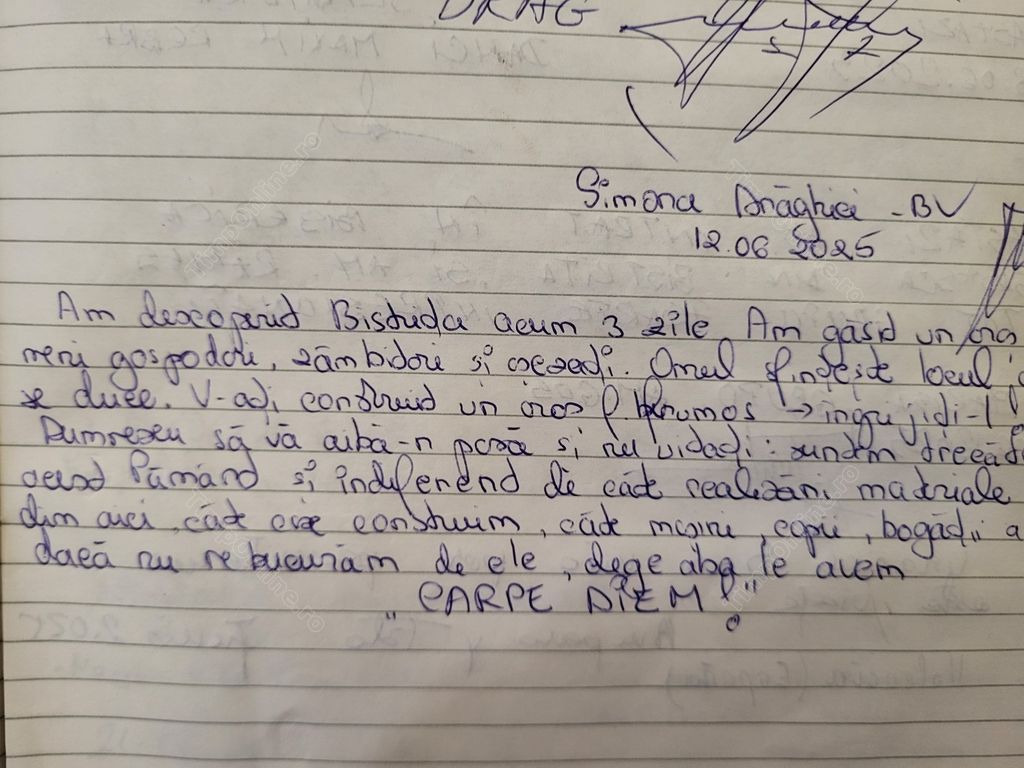 DRAG
Simona Drăghici - BV
12.06.2025
Am descoperit Bistrița acum 3 zile Am găsit un oraș
meni gospodari, zâmbitori și Omul sfințește locul
se duce. V-ați construit un oraș frumos → îngrijiți-l!
Dumnezeu să vă aibă-n pază și nu uitați: suntem trecăt
acest Pământ și indiferent de cât realizări materiale
din aici, cât case construim, cât mașini, copii, bogății a
dacă nu ne bucurăm de ele, dege aba le avem
„CARPE DIEM!"